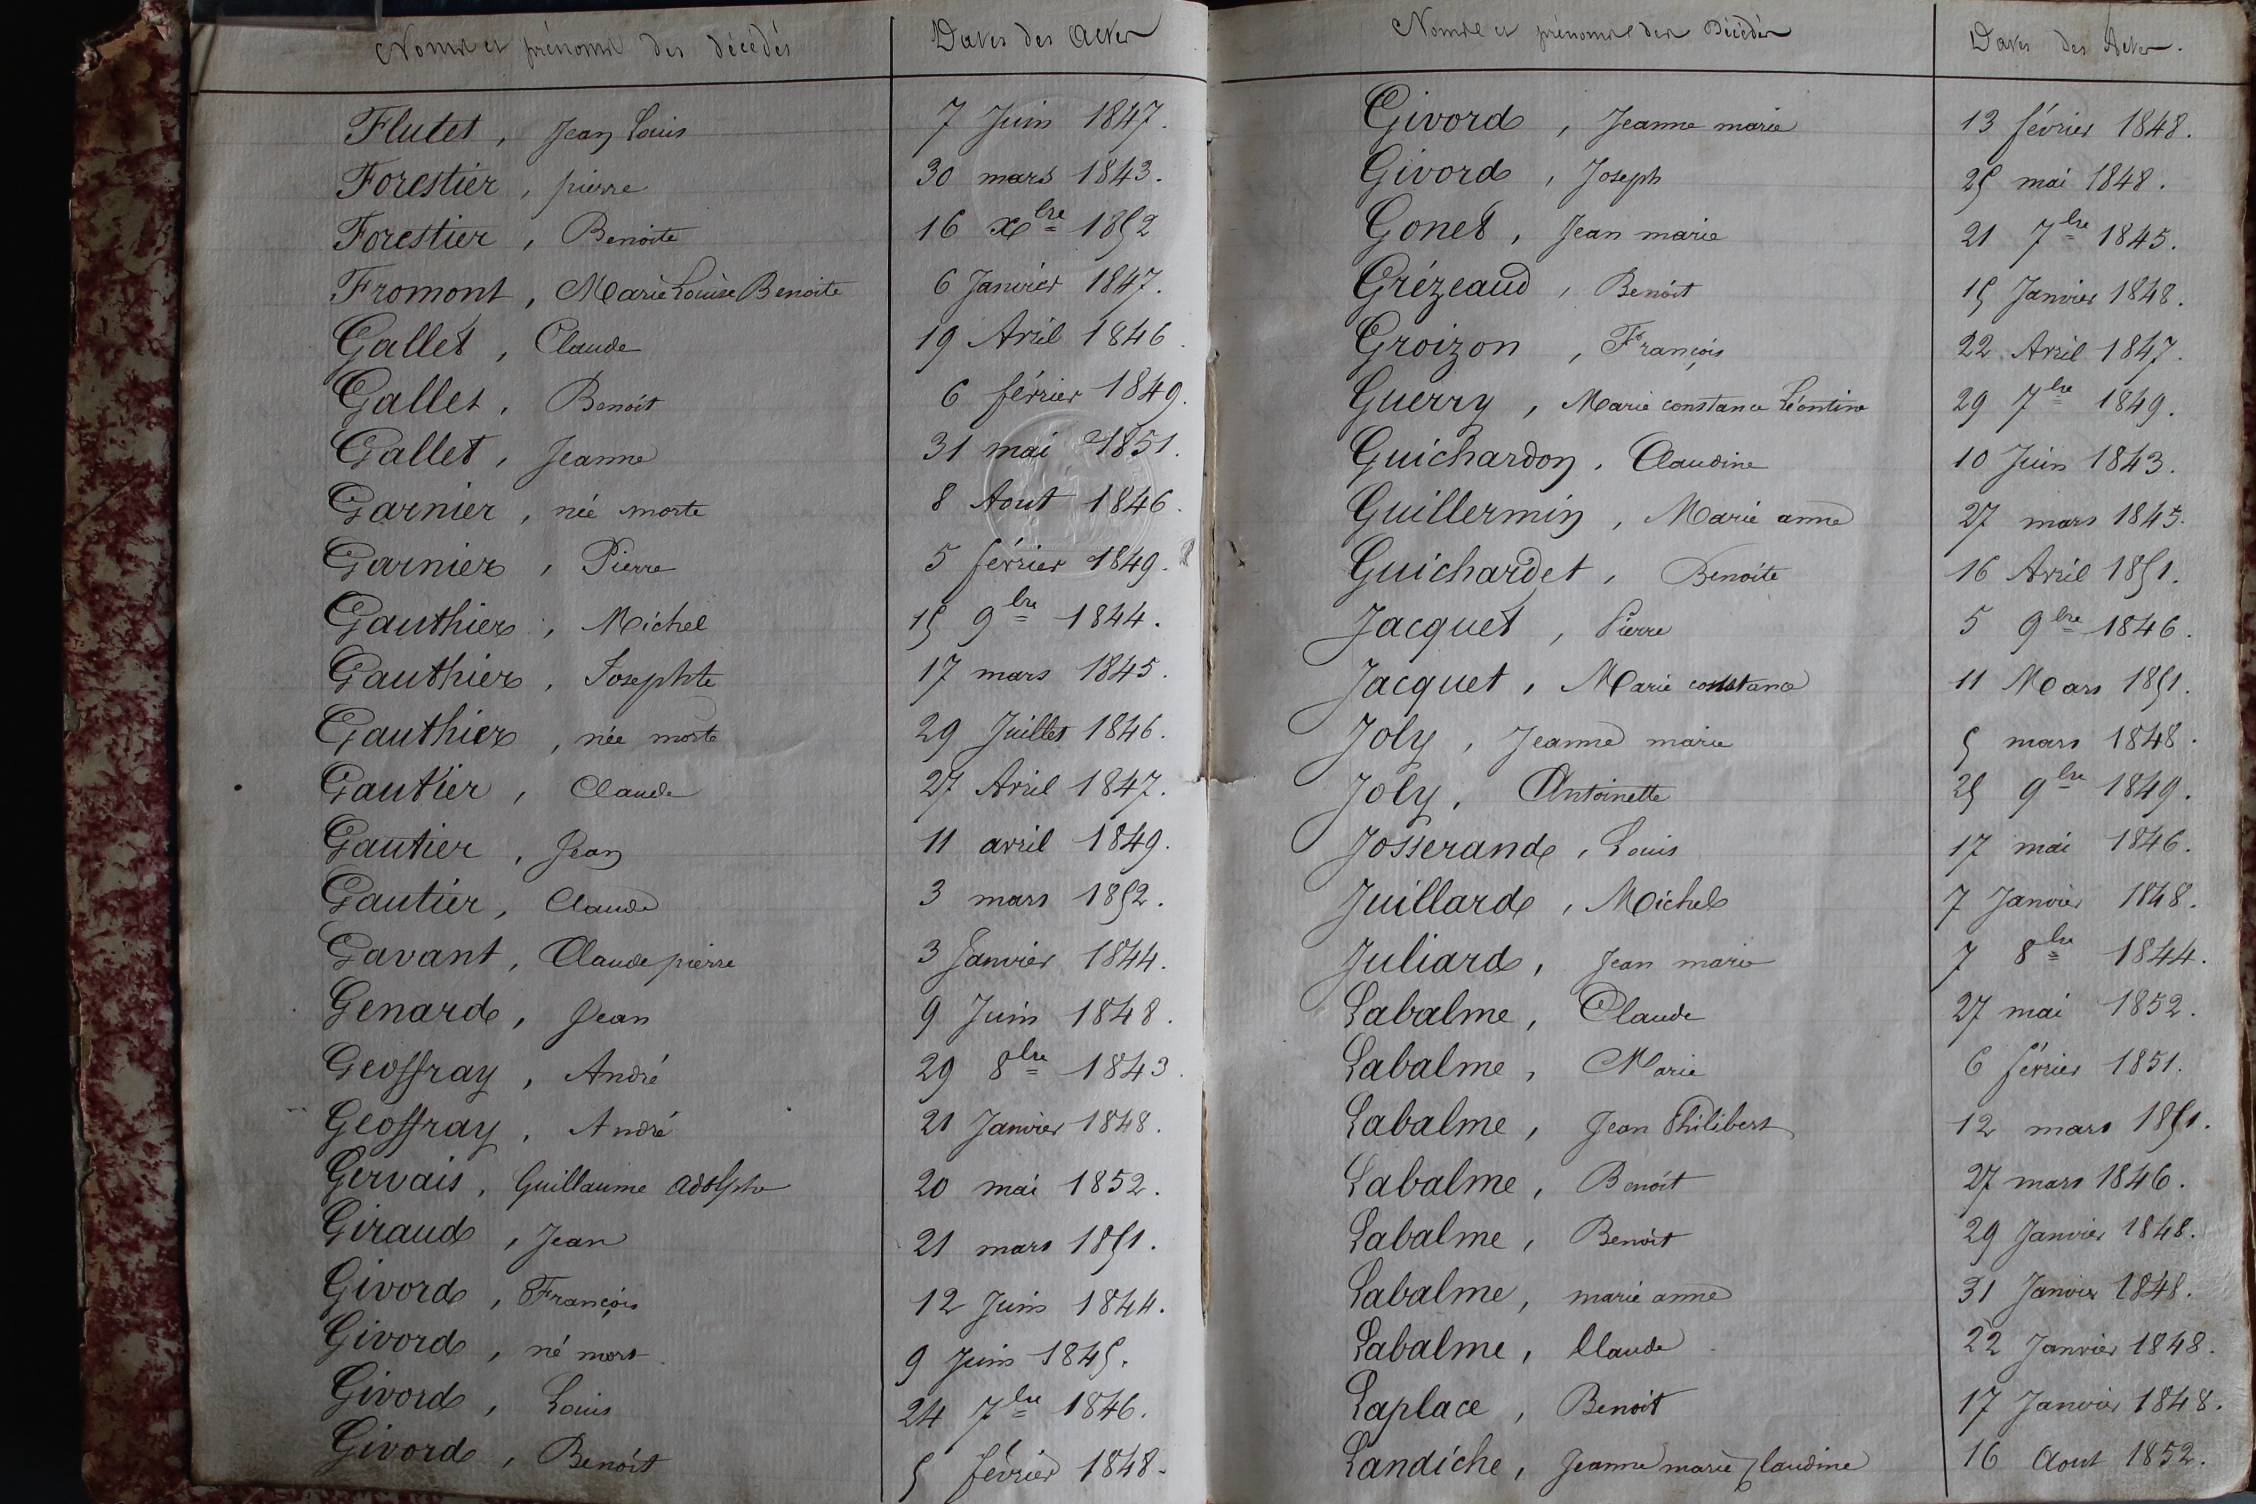 Noms et prénoms des décédés Dates des Actes
Flutet, Jean Louis 7 Juin 1847.
Forestier, pierre 30 mars 1843.
Forestier, Benoite 16 xbre 1852
Fromont, Marie Louise Benoite 6 Janvier 1847.
Gallet, Claude 19 Avril 1846.
Gallet, Benoit 6 février 1849.
Gallet, Jeanne 31 mai 1851.
Garnier, née morte 8 Aout 1846.
Garnier, Pierre 5 février 1849.
Gauthier, Michel 15 9bre 1844.
Gauthier, Josephte 17 mars 1845.
Gauthier, née morte 29 Juillet 1846.
Gautier, Claude 27 Avril 1847.
Gautier, Jean 11 avril 1849.
Gautier, Claude 3 mars 1852.
Gavant, Claude pierre 3 Janvier 1844.
Genard, Jean 9 Juin 1848.
Geoffray, André 29 8bre 1843.
Geoffray, André 21 Janvier 1848.
Gervais, Guillaume Adolphe 20 mai 1852.
Giraud, Jean 21 mars 1851.
Givord, François 12 Juin 1844.
Givord, né mort 9 Juin 1845.
Givord, Louis 24 7bre 1846.
Givord, Benoit 5 février 1848.
Noms et prénoms des Décédés Dates des Actes.
Givord, Jeanne marie 13 février 1848.
Givord, Joseph 25 mai 1848.
Gonet, Jean marie 21 7bre 1845.
Grézeaud, Benoit 15 Janvier 1848.
Groizon, François 22 Avril 1847.
Guerry, Marie constance Léontine 29 7bre 1849.
Guichardon, Claudine 10 Juin 1843.
Guillermin, Marie anne 27 mars 1845.
Guichardet, Benoite 16 Avril 1851.
Jacquet, Pierre 5 9bre 1846.
Jacquet, Marie constance 11 Mars 1851.
Joly, Jeanne marie 5 mars 1848.
Joly, Antoinette 25 9bre 1849.
Josserand, Louis 17 mai 1846.
Juillard, Michel 7 Janvier 1848.
Juliard, Jean marie 7 8bre 1844.
Labalme, Claude 27 mai 1852.
Labalme, Marie 6 février 1851.
Labalme, Jean Philibert 12 mars 1851.
Labalme, Benoit 27 mars 1846.
Labalme, Benoit 29 Janvier 1848.
Labalme, marie anne 31 Janvier 1848.
Labalme, Claude 22 Janvier 1848.
Laplace, Benoit 17 Janvier 1848.
Landiche, Jeanne marie Claudine 16 Aout 1852.